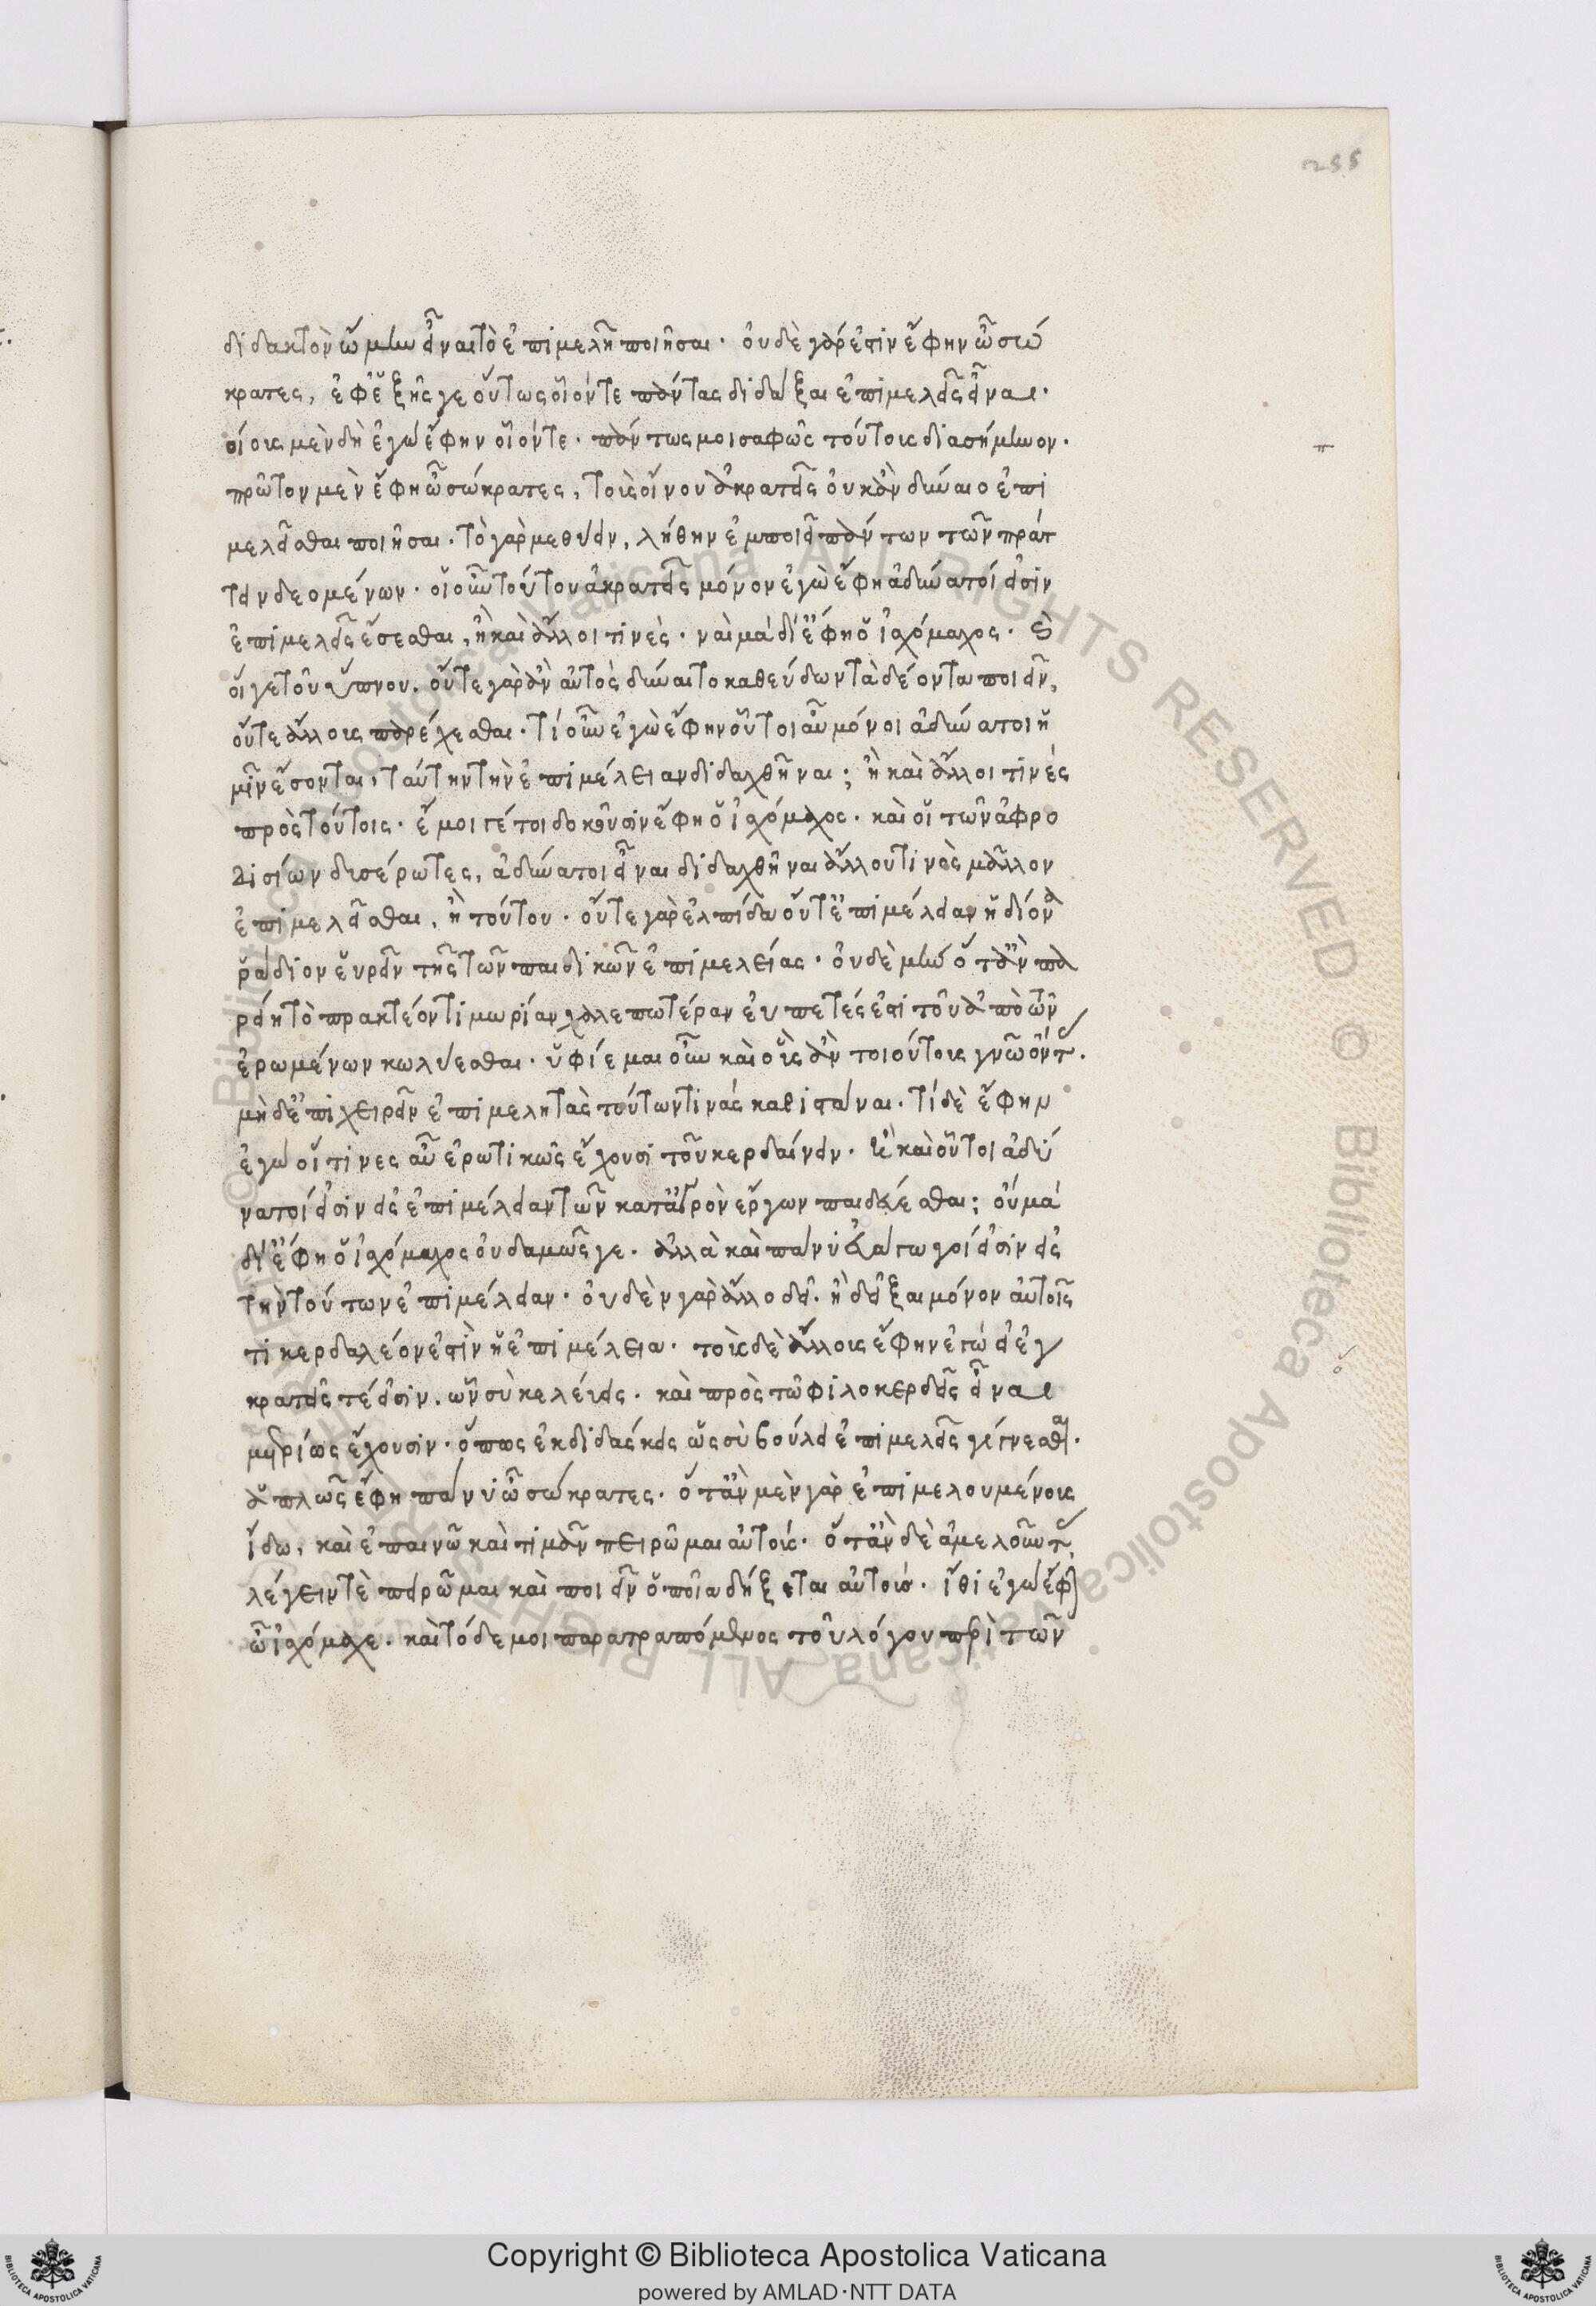 255
διδακτὸν ὤμην εἶναι τὸ ἐπιμελῆ ποιῆσαι· οὐδὲ γάρ ἐστιν ἔφην ὦ σώ
κρατες, ἐφεξῆς γε οὕτως οἷόν τε πάντας διδάξαι ἐπιμελεῖς εἶναι·
οἵους μὲν δὴ ἐγὼ ἔφην οἷόν τε· πάντως μοι σαφῶς τούτους διασήμηνον·
πρῶτον μὲν ἔφη ὦ σώκρατες, τοὺς οἴνου ἀκρατεῖς οὐκ ἂν δύναιο ἐπι
μελεῖσθαι ποιῆσαι· τὸ γὰρ μεθύειν, λήθην ἐμποιεῖ πάντων τῶν πράτ
τειν δεομένων· οἱ οὖν τούτου ἀκρατεῖς μόνον ἐγὼ ἔφη ἀδύνατοί εἰσιν
ἐπιμελεῖς ἔσεσθαι, ἢ καὶ ἄλλοι τινές· ναὶ μὰ δί' ἔφη ὁ ἰσχόμαχος· καὶ
οἵ γε τοῦ ὕπνου. οὔτε γὰρ ἂν αὐτὸς δύναιτο καθεύδων τὰ δέοντα ποιεῖν,
οὔτε ἄλλους παρέχεσθαι· τί οὖν ἐγὼ ἔφην οὗτοι αὖ μόνοι ἀδύνατοι ἡ
μῖν ἔσονται, ταύτην τὴν ἐπιμέλειαν διδαχθῆναι; ἢ καὶ ἄλλοι τινές
πρὸς τούτοις· ἔμοιγέ τοι δοκοῦσιν ἔφη ὁ ἰσχόμαχος· καὶ οἱ τῶν ἀφρο
δισίων δυσέρωτες, ἀδύνατοι εἶναι διδαχθῆναι ἄλλου τινὸς μᾶλλον
ἐπιμελεῖσθαι, ἢ τούτου· οὔτε γὰρ ἐλπίδα οὔτ' ἐπιμέλειαν ἡδίονα
ῥάδιον εὑρεῖν τῆς τῶν παιδικῶν ἐπιμελείας· οὐδὲ μὴν ὅταν πα
ρείη τὸ πρακτέον τιμωρίαν χαλεπωτέραν εὐπετές ἐστι τοῦ ἀπὸ τῶν
ἐρωμένων κωλύεσθαι· ὑφίεμαι οὖν καὶ οὓς ἂν τοιούτους γνῶ ὄντας.
μὴ δ' ἐπιχειρεῖν ἐπιμελητὰς τούτων τινάς καθιστάναι. τί δὲ ἔφην
ἐγὼ οἵτινες αὖ ἐρωτικῶς ἔχουσι τοῦ κερδαίνειν· ἦ καὶ οὗτοι ἀδύ
νατοί εἰσιν εἰς ἐπιμέλειαν τῶν κατ' ἀγρὸν ἔργων παιδεύεσθαι; οὐ μά
δί' ἔφη ὁ ἰσχόμαχος οὐδαμῶς γε. ἀλλὰ καὶ πάνυ εὐάγωγοί εἰσιν εἰς
τὴν τούτων ἐπιμέλειαν· οὐδὲν γὰρ ἄλλο δεῖ. ἢ δεῖξαι μόνον αὐτοῖς
τι κερδαλέον ἐστὶν ἡ ἐπιμέλεια· τοὺς δὲ ἄλλους ἔφην ἐγώ εἰ ἐγ
κρατεῖς τέ εἰσιν. ὧν σὺ κελεύεις. καὶ πρὸς τῷ φιλοκερδεῖς εἶναι
μετρίως ἔχουσιν· ὅπως ἐκδιδάσκεις ὥς σὺ βούλει ἐπιμελεῖς γίγνεσθαι.
ἁπλῶς ἔφη πάνυ ὦ σώκρατες. ὅταν μὲν γὰρ ἐπιμελουμένους
ἴδω, καὶ ἐπαινῶ καὶ τιμᾶν πειρῶμαι αὐτούς· ὅταν δὲ ἀμελοῦντας,
λέγειν τὲ πειρῶμαι καὶ ποιεῖν ὁποῖα δήξεται αὐτούς. ἴθι ἐγὼ ἔφην
ὦ ἰσχόμαχε. καὶ τόδε μοι παρατραπόμενος τοῦ λόγου περὶ τῶν
Copyright © Biblioteca Apostolica Vaticana
powered by AMLAD·NTT DATA